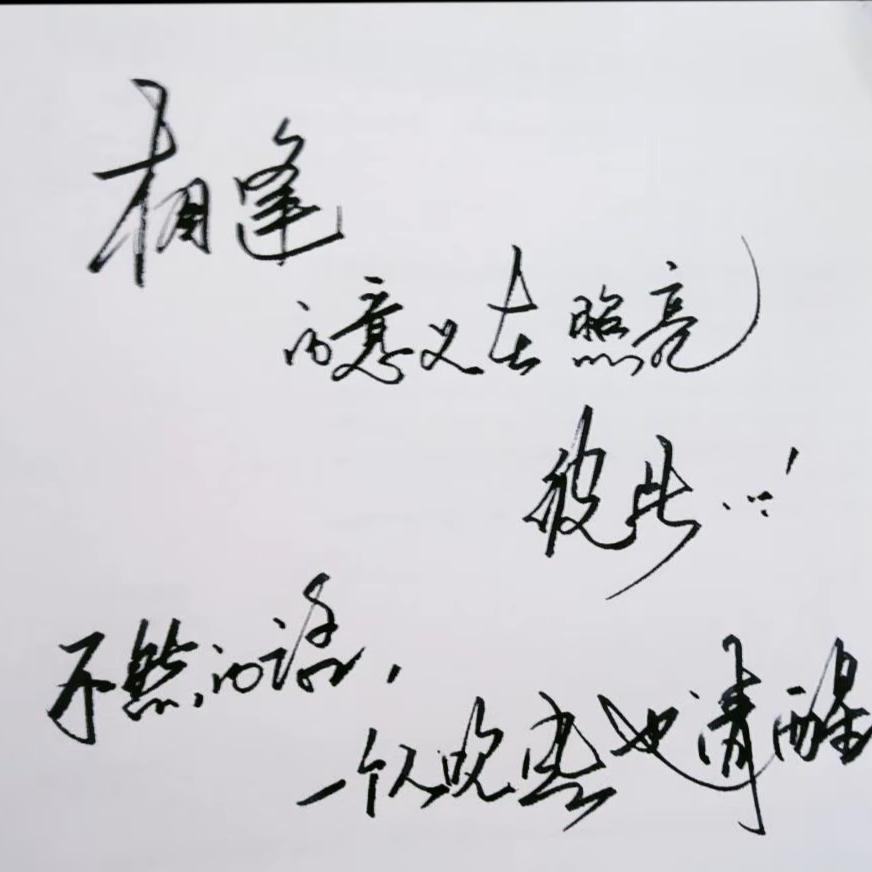 相逢
的意义在照亮
彼此...!
不然的话,
一个人晚些也清醒